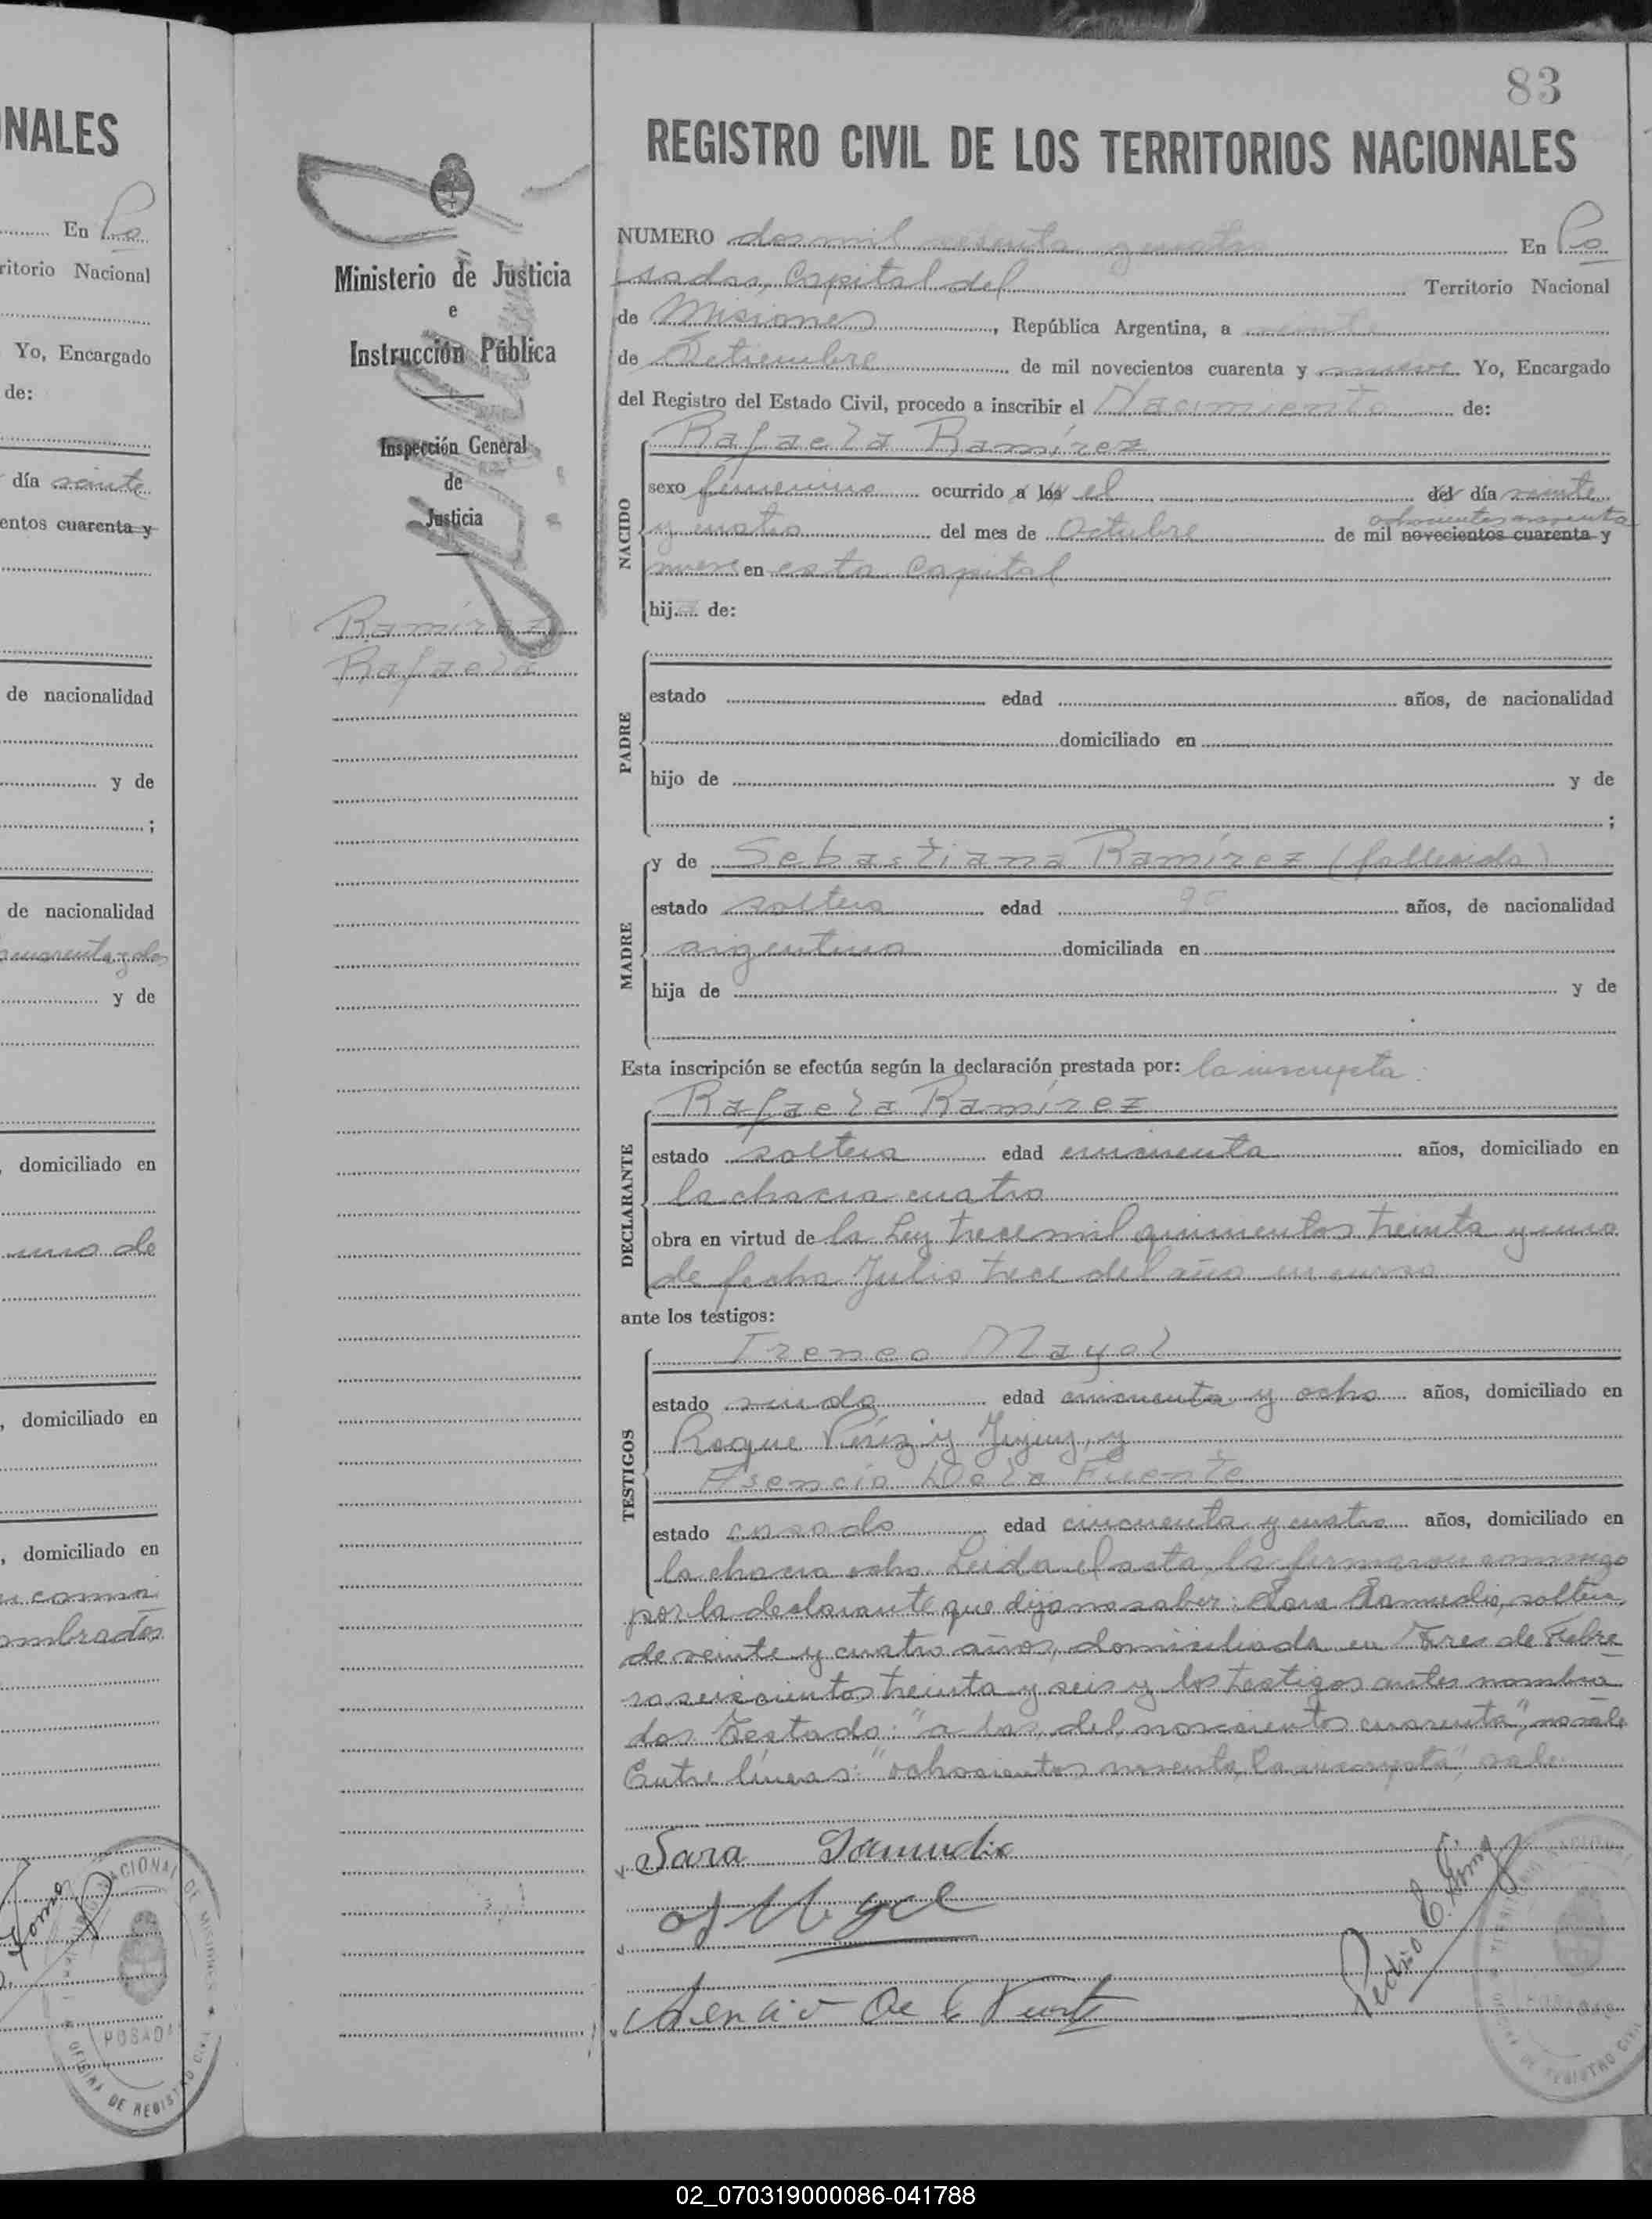 NALES
En Po
ritorio Nacional
Yo, Encargado
de:
día veinte
entos cuarenta y
de nacionalidad
y de
;
de nacionalidad
cuarenta y dos
y de
domiciliado en
uno de
, domiciliado en
, domiciliado en
ombrados
POSADA
Ministerio de Justicia
e
Instrucción Pública
Inspección General
de
Justicia
Ramírez
Rafaela
83
REGISTRO CIVIL DE LOS TERRITORIOS NACIONALES
NUMERO dos mil y cuatro En Po
sadas, Capital del Territorio Nacional
de Misiones, República Argentina, a veinte
de Setiembre de mil novecientos cuarenta y nueve Yo, Encargado
del Registro del Estado Civil, procedo a inscribir el Nacimiento de:
NACIDO
Rafaela Ramírez
sexo femenino ocurrido a las el del día veinte
ochocientos noventa
y cuatro del mes de Octubre de mil novecientos cuarenta y
nueve en esta Capital
hija de:
PADRE
estado edad años, de nacionalidad
domiciliado en
hijo de y de
;
MADRE
y de Sebastiana Ramírez (fallecida)
estado soltera edad años, de nacionalidad
argentina domiciliada en
hija de y de
Esta inscripción se efectúa según la declaración prestada por: la inscripta
DECLARANTE
Rafaela Ramírez
estado soltera edad cincuenta años, domiciliado en
la chacra cuatro
obra en virtud de la Ley trece mil quinientos treinta y uno
de fecha Julio trece del año en curso
ante los testigos:
TESTIGOS
Ireneo Mayol
estado viudo edad cincuenta y ocho años, domiciliado en
Roque Pérez y Jujuy, y
Asencio De la Fuente
estado casado edad cincuenta y cuatro años, domiciliado en
la chacra ocho. Leida el acta, la firmaron conmigo
por la declarante que dijo no saber: Sara Samudio, soltera
de veinte y cuatro años, domiciliada en Tres de Febre
ro seiscientos treinta y seis y los testigos antes nombra
dos. Testado: "a las, del, novecientos cuarenta", no vale
Entre líneas: "ochocientos noventa, la inscripta", vale.
Sara Samudio
Asencio De la Fuente
Pedro E. Gomez
02_070319000086-041788